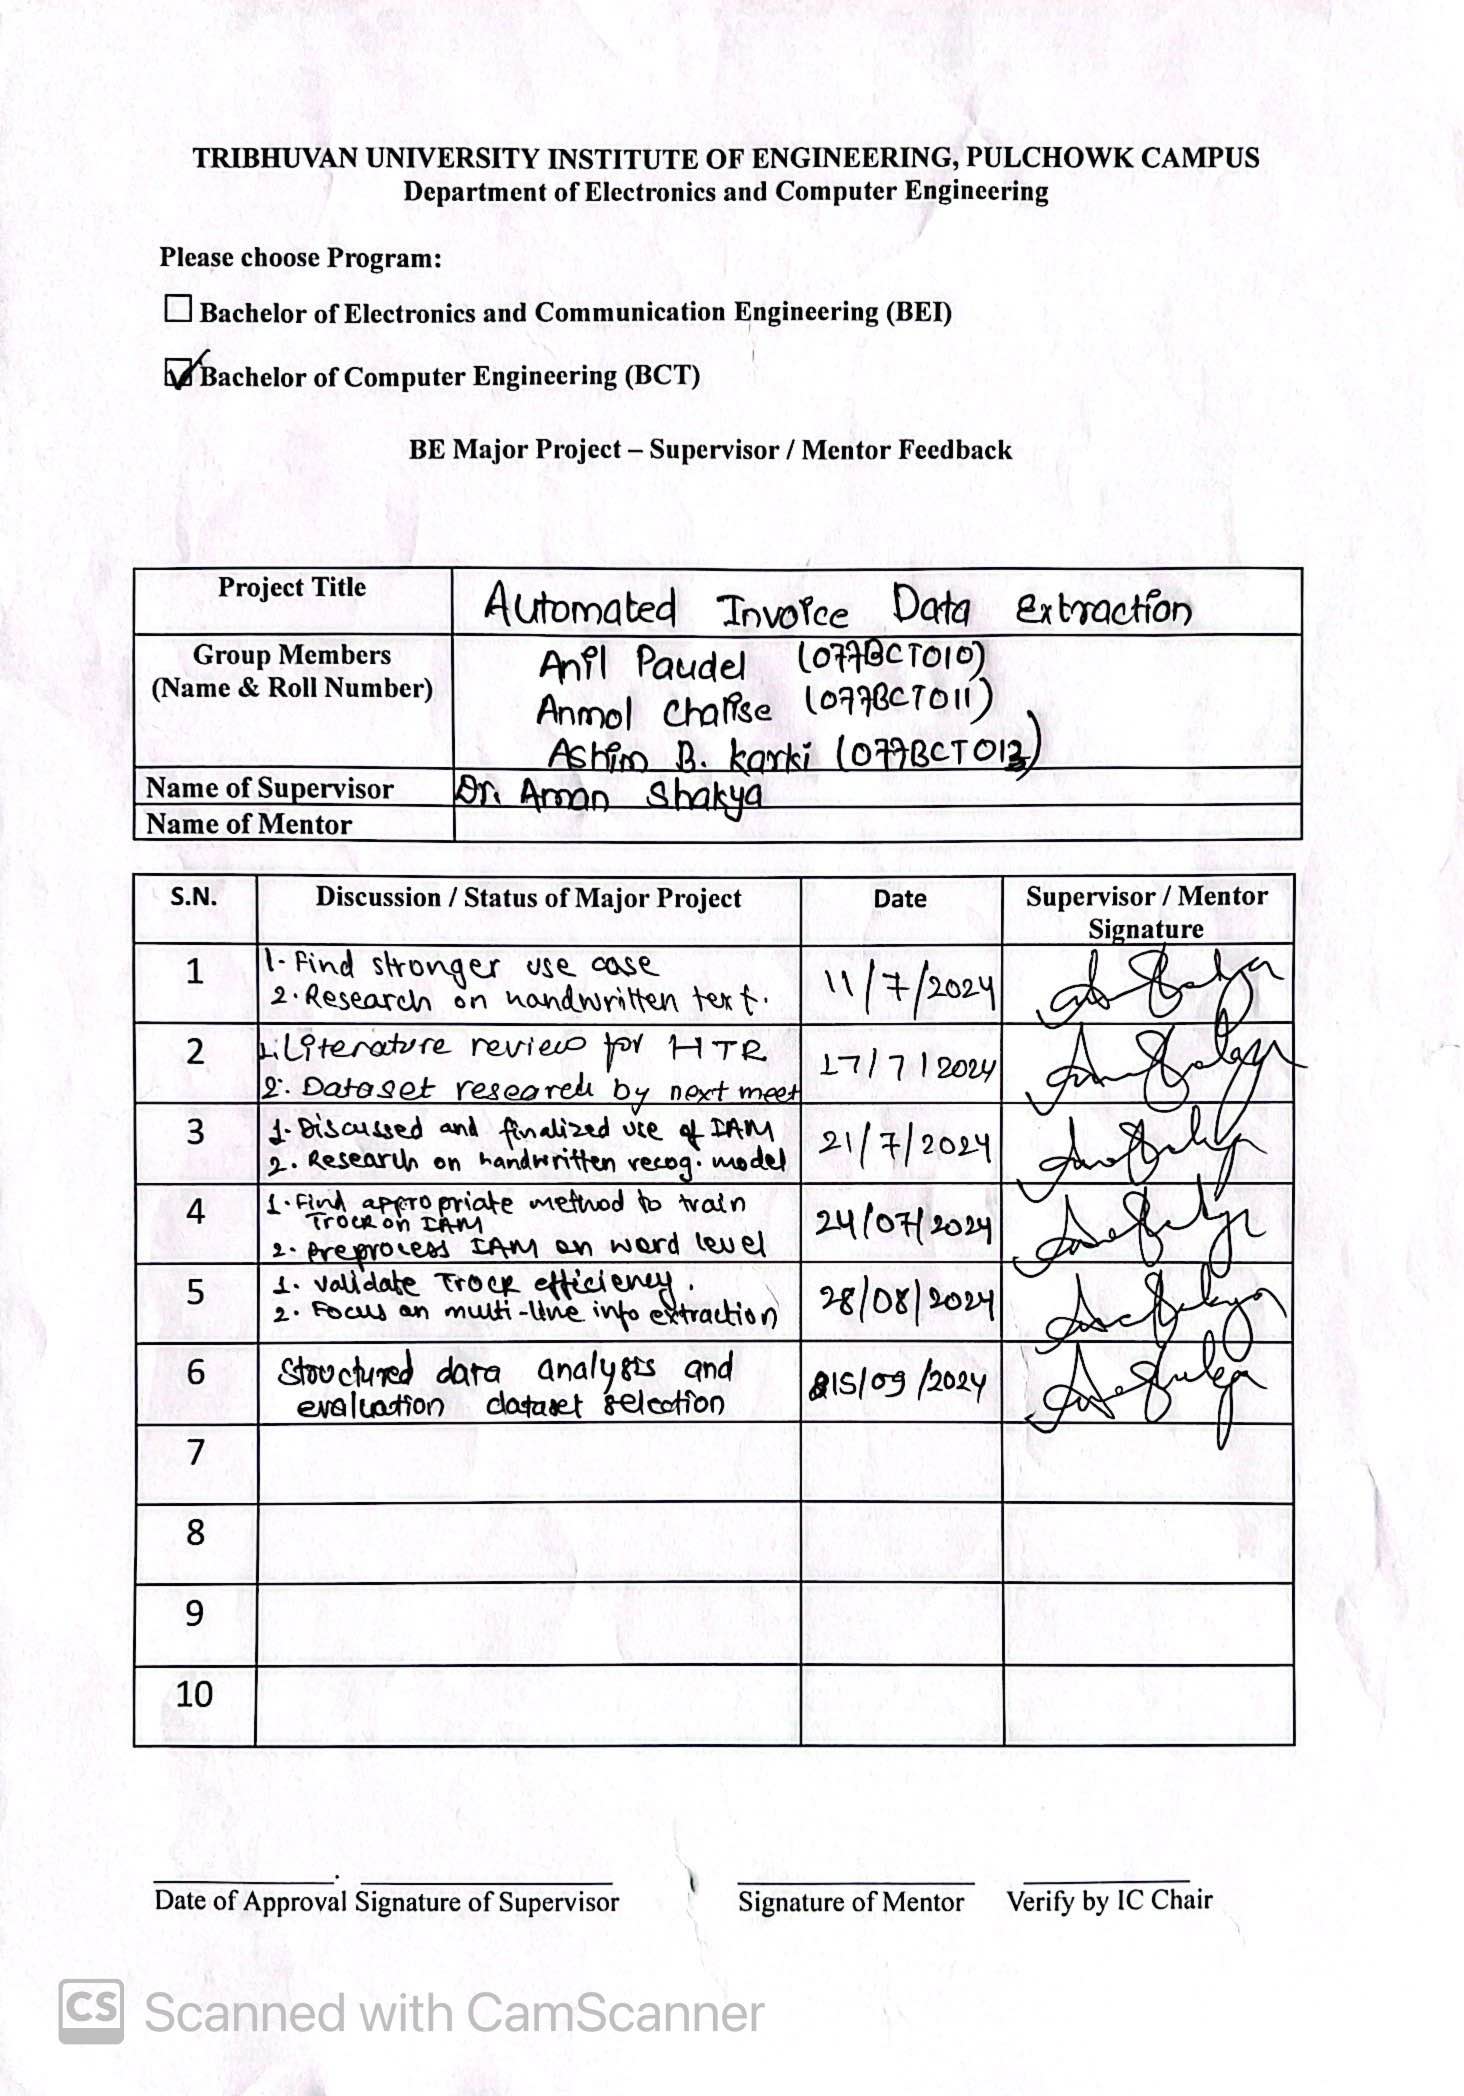 TRIBHUVAN UNIVERSITY INSTITUTE OF ENGINEERING, PULCHOWK CAMPUS
Department of Electronics and Computer Engineering
Please choose Program:
Bachelor of Electronics and Communication Engineering (BEI)
Bachelor of Computer Engineering (BCT)
BE Major Project – Supervisor / Mentor Feedback
Project Title Automated Invoice Data Extraction
Group Members
(Name & Roll Number)
Anil Paudel (077BCT010)
Anmol Chalise (077BCT011)
Ashim B. Karki (077BCT013)
Name of Supervisor Dr. Aman Shakya
Name of Mentor
S.N. Discussion / Status of Major Project Date Supervisor / Mentor
Signature
1 1. Find stronger use case
2. Research on handwritten text. 11/7/2024
2 1. Literature review for HTR
2. Dataset research by next meet 17/7/2024
3 1. Discussed and finalized use of IAM
2. Research on handwritten recog. model 21/7/2024
4 1. Find appropriate method to train
TrOCR on IAM
2. preprocess IAM on word level 24/07/2024
5 1. validate TrOCR efficiency.
2. Focus on multi-line info extraction 28/08/2024
6 Structured data analysis and
evaluation dataset selection 15/09/2024
7
8
9
10
Date of Approval Signature of Supervisor Signature of Mentor Verify by IC Chair
CS Scanned with CamScanner